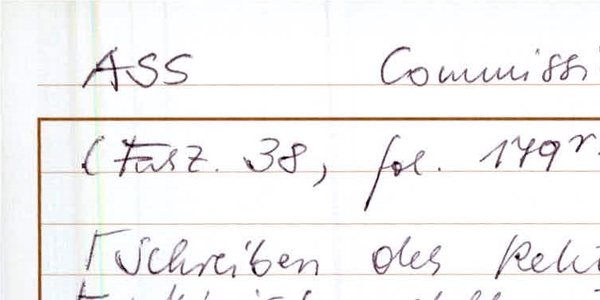 ASS Commissi
(Fasz. 38, fol. 179r.
[Schreiben des Rekt